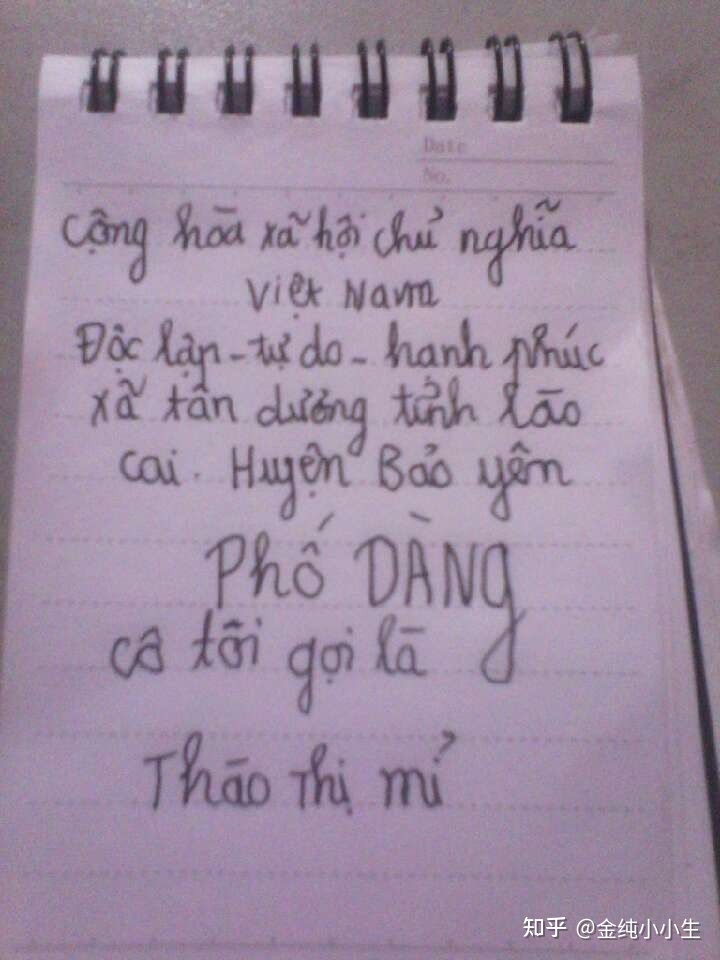 Date
No.
cộng hāa xã hội chủ nghĩa
việt Nam
Độc lập - tự do - hanh phúc
xã tân dương tỉnh lāo
cai. Huyện Bảo yên
PHố DÀNg
cô tôi gọi lā
Thāo Thị mỉ
知乎 @金纯小小生